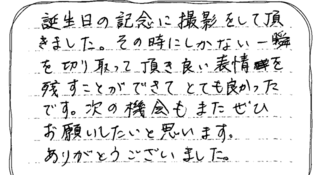 誕生日の記念に撮影をして頂
きました。その時にしかない一瞬
を切り取って頂き良い表情を
残すことができてとても良かった
です。次の機会もまたぜひ
お願いしたいと思います。
ありがとうございました。